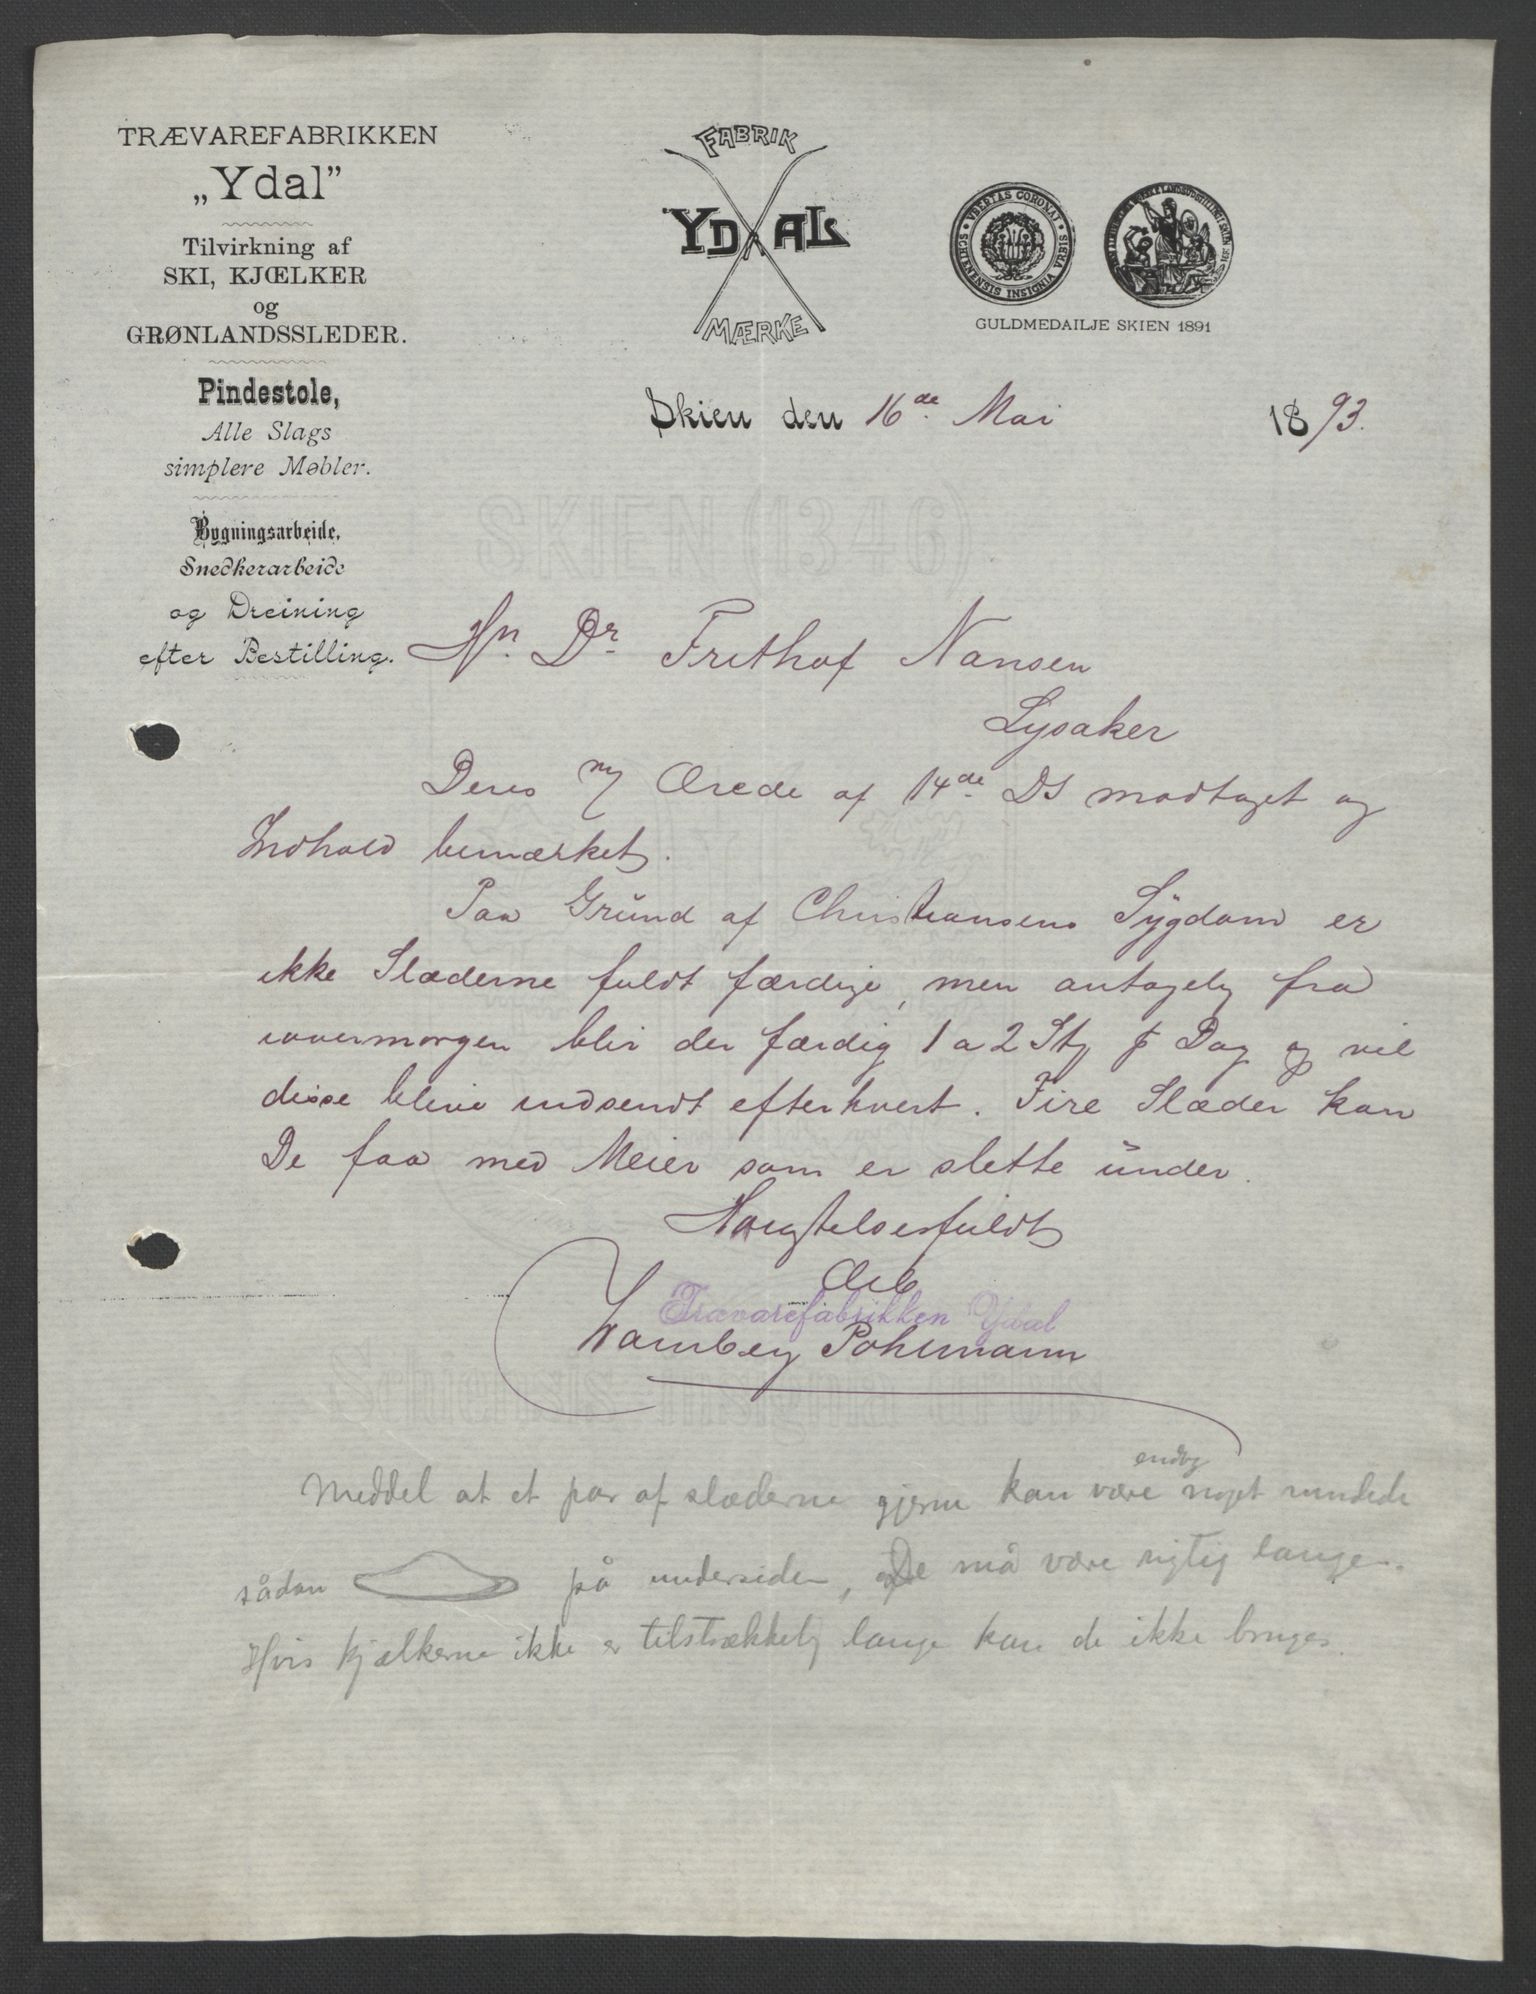 TRÆVAREFABRIKKEN
„Ydal”
Tilvirkning af
SKI, KJŒLKER
og
GRØNLANDSSLEDER.
Pindestole,
Alle Slags
simplere Møbler.
Bygningsarbeide,
Snedkerarbeide
og Dreining
efter Bestilling.
FABRIK
YDAL
MÆRKE
VBERTAS CORONAT
SCHENENSIS INSIGNIA VRBIS
GULDMEDAILJE SKIEN 1891
Skien den 16de Mai 1893.
SKIEN (1346)
Hn. Dr. Frithof Nansen
Lysaker
Deres Ærede af 14de Ds modtaget og
Indhold bemærket.
Paa Grŭnd af Christiansens Sÿgdom er
ikke Slæderne fuldt færdige, men antagelig fra
iovermorgen blir der færdig 1 a 2 Stg pr Dag og vil
disse blive indsendt efterhvert. Fire Slæder kan
De faa med Meier som er slette ŭnder.
Høiagtelsesfuldt
Trævarefabrikken Ydal
Wamberg Pohlmann
Schiensis insignia urbis
Meddel at et par af slæderne gjerne kan være endog noget rundede
sådan på undersiden, De må være rigtig lange.
Hvis kjælkerne ikke er tilstrækkelig lange kan de ikke bruges.